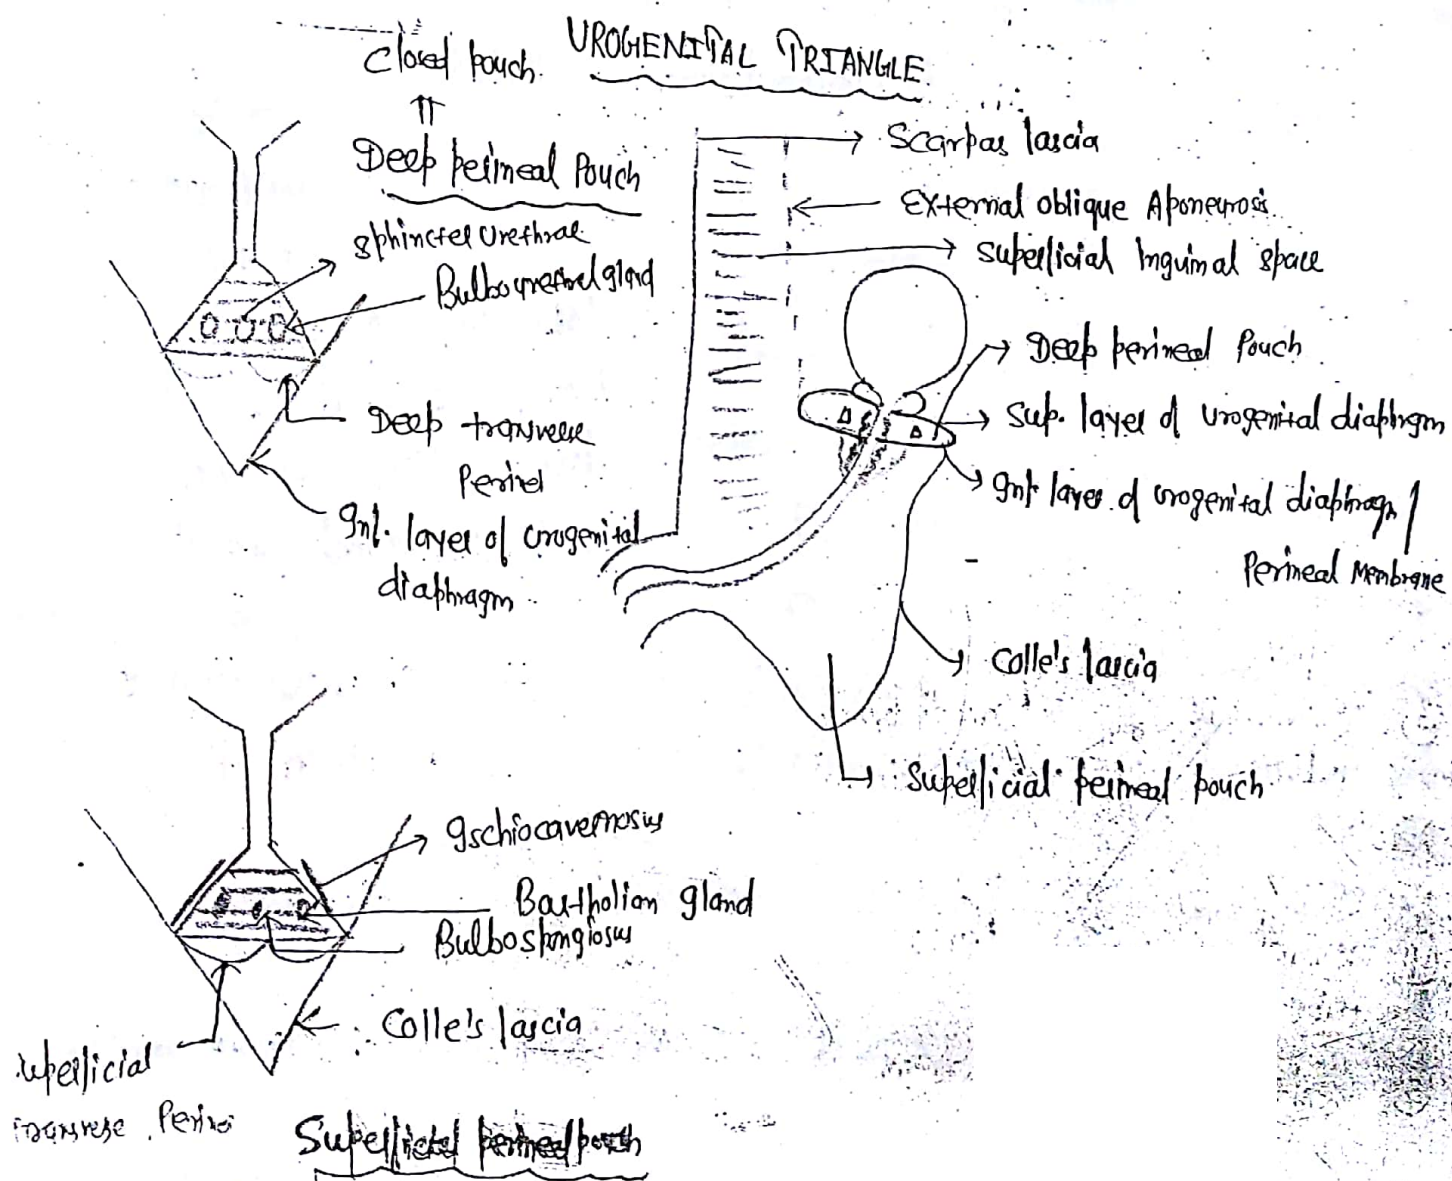 UROGENITAL TRIANGLE
Closed pouch.
Deep perineal Pouch
sphincter urethrae
Bulbourethral gland
Deep transverse
Perinei
Inf. layer of urogenital
diaphragm
Scarpas fascia
External oblique Aponeurosis
superficial Inguinal space
Deep perineal Pouch
Sup. layer of urogenital diaphragm
Inf. layer of urogenital diaphragm /
Perineal Membrane
Colle's fascia
Superficial perineal pouch
Ischiocavernosus
Bartholian gland
Bulbospongiosus
Colle's fascia
superficial
transverse Perinei
Superficial perineal pouch